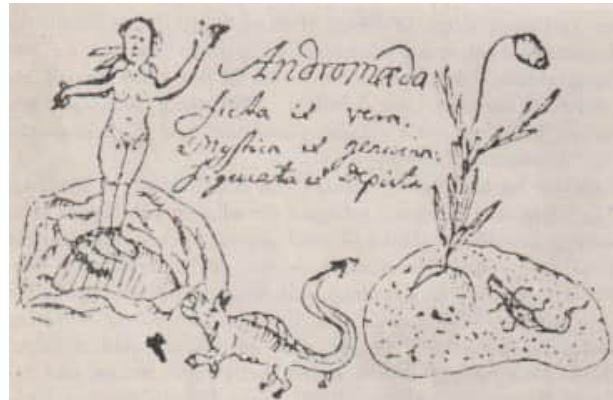 Andromæda
ficta et vera,
Mystica et genuina,
figurata et depicta.